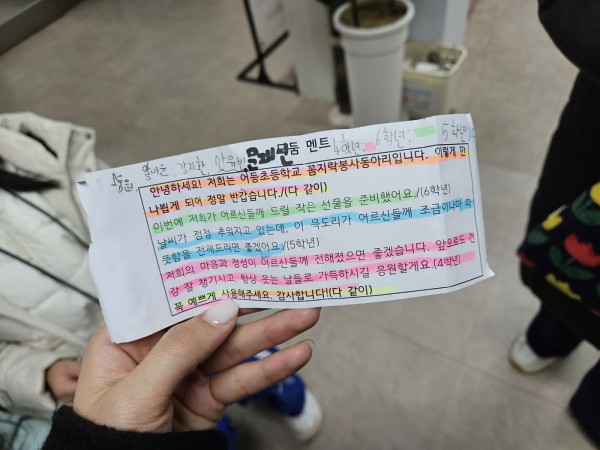 김지한 문래면둠 멘트 4학년: 6학년: 5학년:
안녕하세요! 저희는 어등초등학교 꼼지락봉사동아리입니다. 이렇게 만
나뵙게 되어 정말 반갑습니다./(다 같이)
이번에 저희가 어르신들께 드릴 작은 선물을 준비했어요./(6학년)
날씨가 점점 추워지고 있는데, 이 목도리가 어르신들께 조금이나마 따
뜻함을 전해드리면 좋겠어요./(5학년)
저희의 마음과 정성이 어르신들께 전해졌으면 좋겠습니다. 앞으로도 건
강 잘 챙기시고, 항상 웃는 날들로 가득하시길 응원할게요.(4학년)
꼭 예쁘게 사용해주세요. 감사합니다!(다 같이)